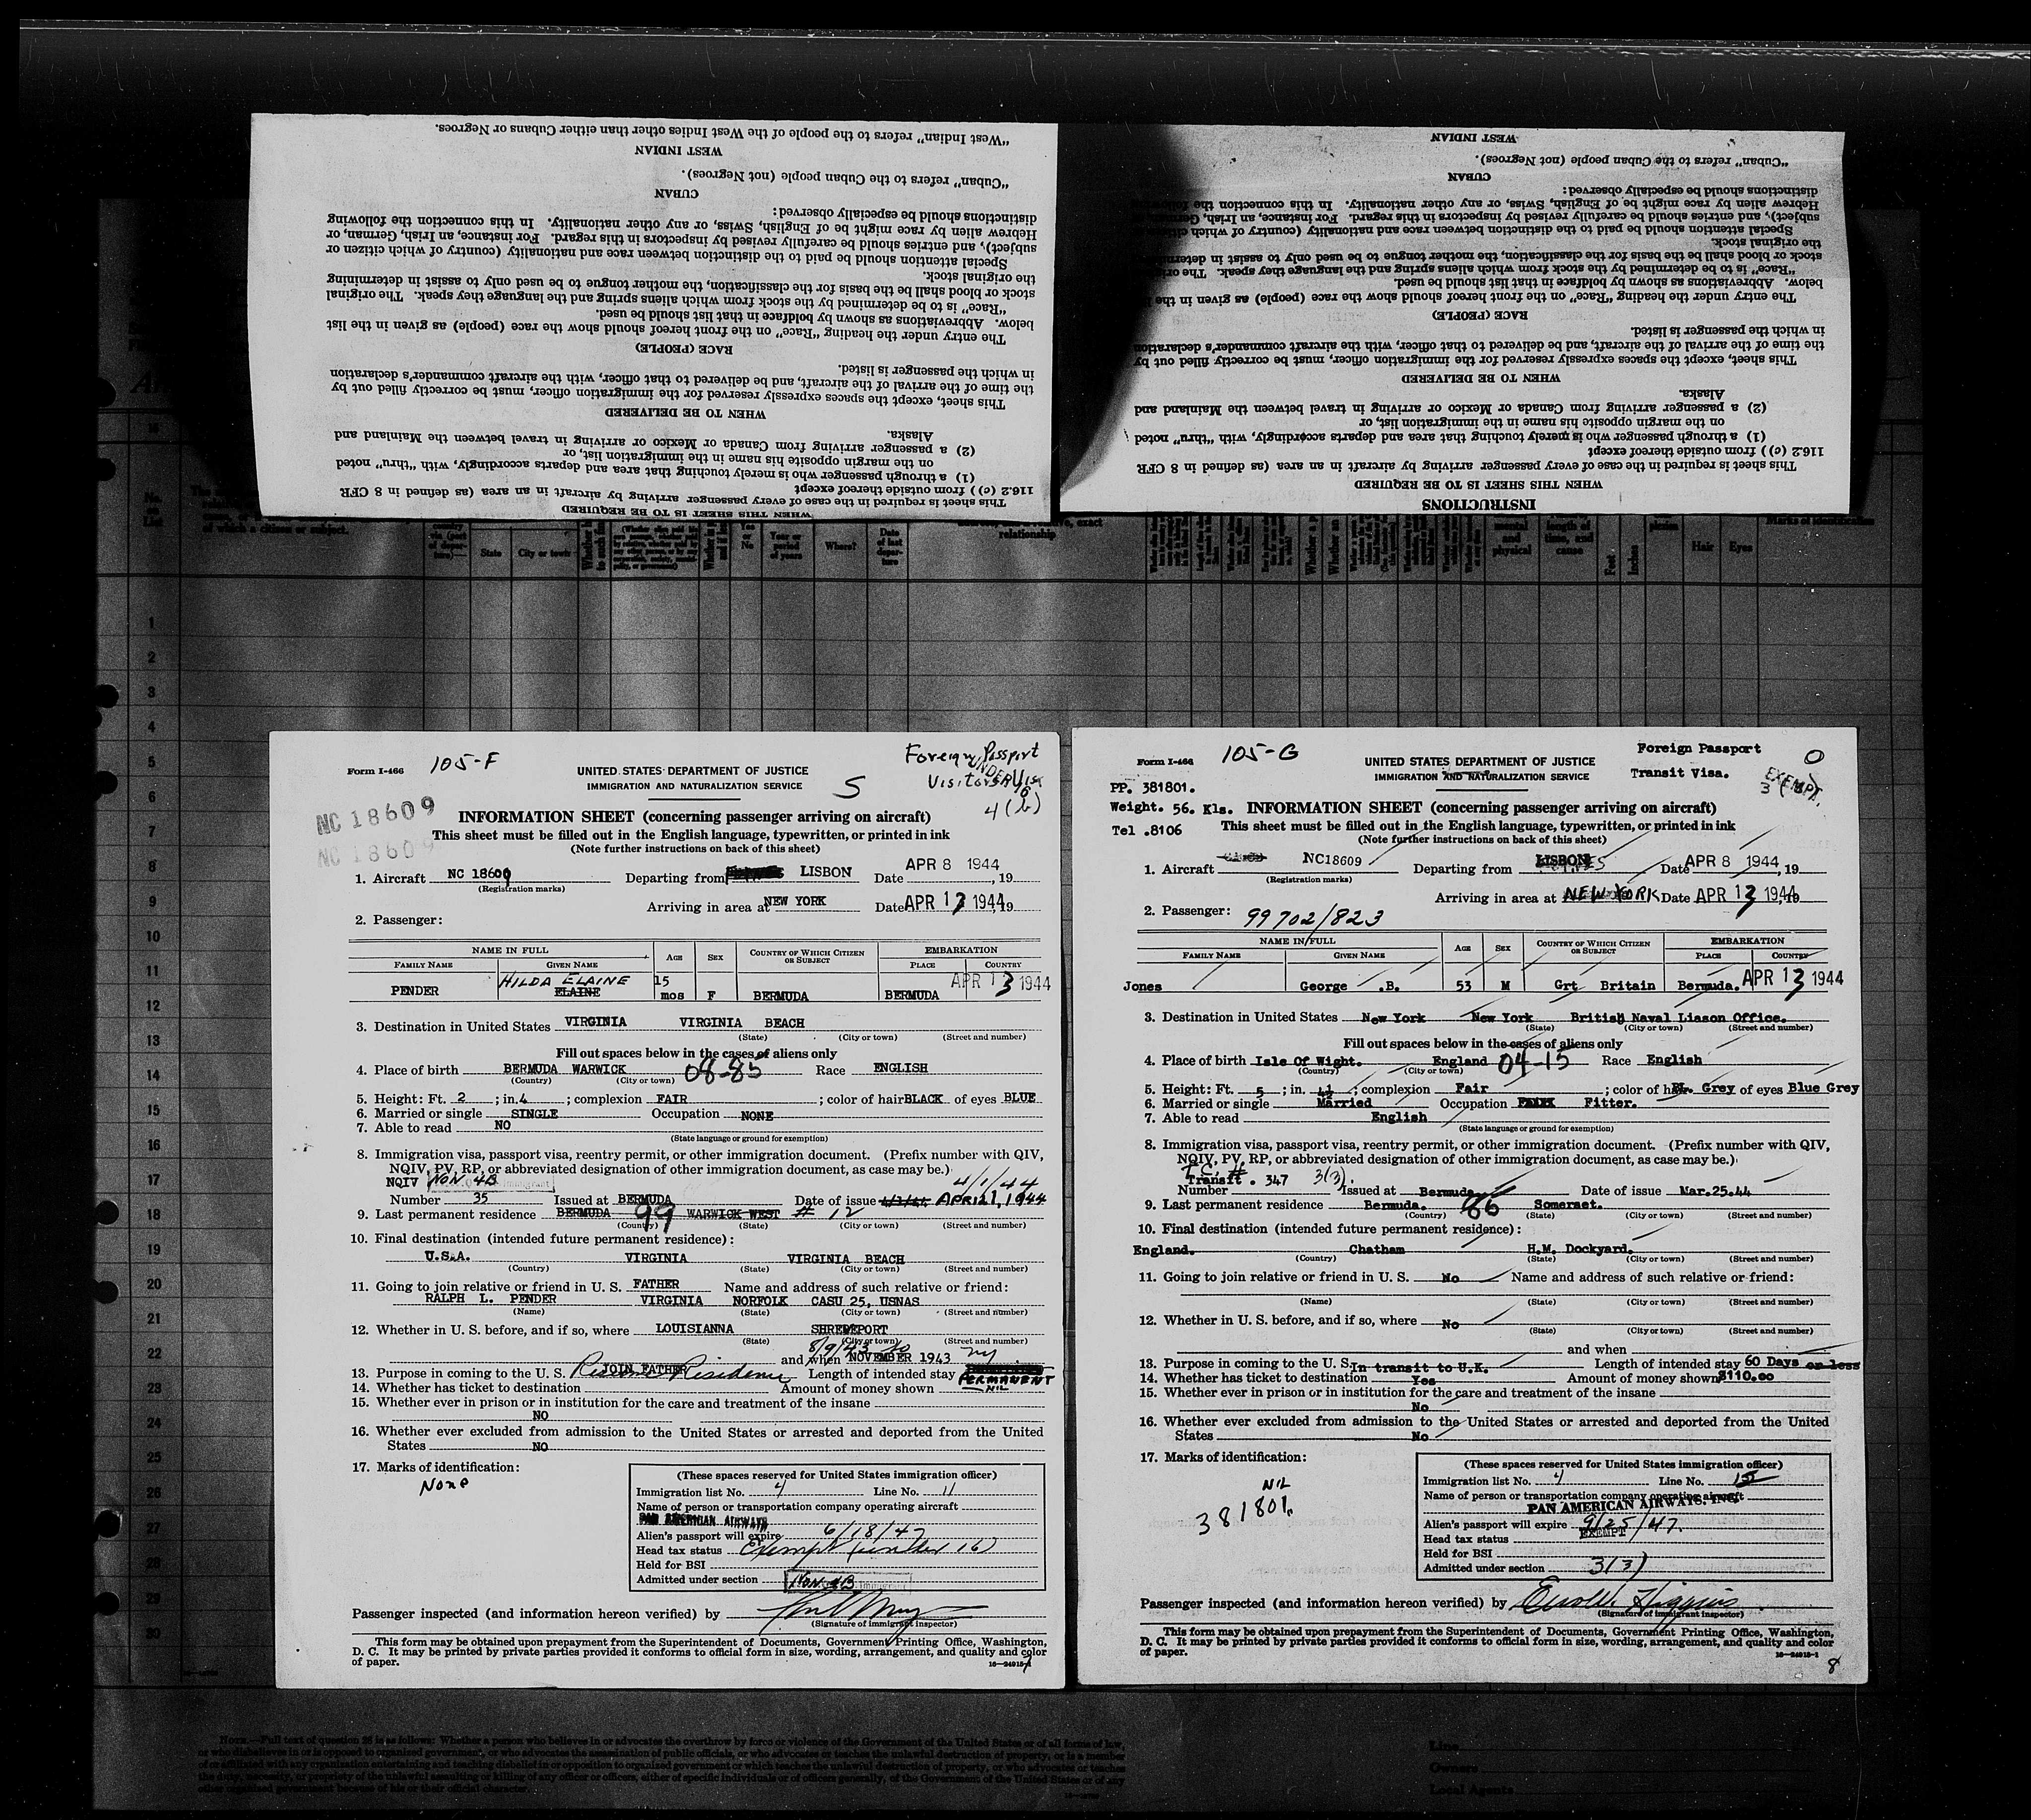 "West Indian" refers to the people of the West Indies other than either Cubans or Negroes.
WEST INDIAN
"Cuban" refers to the Cuban people (not Negroes).
CUBAN
distinctions should be especially observed:
Hebrew alien by race might be of English, Swiss, or any other nationality. In this connection the following
subject), and entries should be carefully revised by inspectors in this regard. For instance, an Irish, German, or
Special attention should be paid to the distinction between race and nationality (country of which citizen or
the original stock.
stock or blood shall be the basis for the classification, the mother tongue to be used only to assist in determining
"Race" is to be determined by the stock from which aliens spring and the language they speak. The original
below. Abbreviations as shown by boldface in that list should be used.
The entry under the heading "Race" on the front hereof should show the race (people) as given in the list
RACE (PEOPLE)
in which the passenger is listed.
the time of the arrival of the aircraft, and be delivered to that officer, with the aircraft commander's declaration
This sheet, except the spaces expressly reserved for the immigration officer, must be correctly filled out by
WHEN TO BE DELIVERED
Alaska.
(2) a passenger arriving from Canada or Mexico or arriving in travel between the Mainland and
on the margin opposite his name in the immigration list, or
(1) a through passenger who is merely touching that area and departs accordingly, with "thru" noted
116.2 (c)) from outside thereof except
This sheet is required in the case of every passenger arriving by aircraft in an area (as defined in 8 CFR
WHEN THIS SHEET IS TO BE REQUIRED
WEST INDIAN
"Cuban" refers to the Cuban people (not Negroes).
CUBAN
distinctions should be especially observed:
Hebrew alien by race might be of English, Swiss, or any other nationality. In this connection the
subject), and entries should be carefully revised by inspectors in this regard. For instance, an Irish,
Special attention should be paid to the distinction between race and nationality (country of which
the original stock.
stock or blood shall be the basis for the classification, the mother tongue to be used only to assist in
"Race" is to be determined by the stock from which aliens spring and the language they speak. The
below. Abbreviations as shown by boldface in that list should be used.
The entry under the heading "Race" on the front hereof should show the race (people) as given in the
RACE (PEOPLE)
in which the passenger is listed.
the time of the arrival of the aircraft, and be delivered to that officer, with the aircraft commander's declaration
This sheet, except the spaces expressly reserved for the immigration officer, must be correctly filled out by
WHEN TO BE DELIVERED
Alaska.
(2) a passenger arriving from Canada or Mexico or arriving in travel between the Mainland and
on the margin opposite his name in the immigration list, or
(1) a through passenger who is merely touching that area and departs accordingly, with "thru" noted
116.2 (c)) from outside thereof except
This sheet is required in the case of every passenger arriving by aircraft in an area (as defined in 8 CFR
WHEN THIS SHEET IS TO BE REQUIRED
INSTRUCTIONS
of which a citizen or subject.
State City or town Yes or No Year or period of years Where? Date of last departure relationship
mental and physical length of time, and cause Feet Inches Hair Eyes Marks of identification
1
2
3
4
5
6
7
8
9
10
11
12
13
14
15
16
17
18
19
20
21
22
23
24
25
26
27
28
29
30
Form I-466 105-F
Foreign Passport
Visitors Visa
UNDER 16
4(b)
S
UNITED STATES DEPARTMENT OF JUSTICE
IMMIGRATION AND NATURALIZATION SERVICE
NC 18609
NC 18609
INFORMATION SHEET (concerning passenger arriving on aircraft)
This sheet must be filled out in the English language, typewritten, or printed in ink
(Note further instructions on back of this sheet)
1. Aircraft NC 18609 Departing from LISBON Date APR 8 1944, 19
(Registration marks)
Arriving in area at NEW YORK Date APR 13 1944, 19
2. Passenger:
NAME IN FULL AGE SEX COUNTRY OF WHICH CITIZEN OR SUBJECT EMBARKATION
FAMILY NAME GIVEN NAME PLACE COUNTRY
PENDER HILDA ELAINE ELAINE 15 mos F BERMUDA BERMUDA APR 13 1944
3. Destination in United States VIRGINIA VIRGINIA BEACH
(State) (City or town) (Street and number)
Fill out spaces below in the cases of aliens only
4. Place of birth BERMUDA WARWICK 08-85 Race ENGLISH
(Country) (City or town)
5. Height: Ft. 2; in. 4; complexion FAIR; color of hair BLACK of eyes BLUE
6. Married or single SINGLE Occupation NONE
7. Able to read NO
(State language or ground for exemption)
8. Immigration visa, passport visa, reentry permit, or other immigration document. (Prefix number with QIV,
NQIV, PV, RP, or abbreviated designation of other immigration document, as case may be.)
NQIV NON 4B 4/1/44
Number 35 Issued at BERMUDA Date of issue APRIL 1, 1944
9. Last permanent residence BERMUDA 99 WARWICK WEST # 12
(Country) (State) (City or town) (Street and number)
10. Final destination (intended future permanent residence):
U.S.A. VIRGINIA VIRGINIA BEACH
(Country) (State) (City or town) (Street and number)
11. Going to join relative or friend in U. S. FATHER Name and address of such relative or friend:
RALPH L. PENDER VIRGINIA NORFOLK CASU 25, USNAS
(Name) (State) (City or town) (Street and number)
12. Whether in U. S. before, and if so, where LOUISIANNA SHREVEPORT
(State) (City or town) (Street and number)
8/9/43 to
and when NOVEMBER 1943 ny
13. Purpose in coming to the U. S. JOIN FATHER Residence Length of intended stay PERMANENT
14. Whether has ticket to destination Amount of money shown NIL
15. Whether ever in prison or in institution for the care and treatment of the insane
NO
16. Whether ever excluded from admission to the United States or arrested and deported from the United
States NO
17. Marks of identification:
None
(These spaces reserved for United States immigration officer)
Immigration list No. 4 Line No. 11
Name of person or transportation company operating aircraft
PAN AMERICAN AIRWAYS
Alien's passport will expire 6/18/47
Head tax status Exempt (under 16)
Held for BSI
Admitted under section Non 4B
Passenger inspected (and information hereon verified) by
(Signature of immigrant inspector)
This form may be obtained upon prepayment from the Superintendent of Documents, Government Printing Office, Washington,
D. C. It may be printed by private parties provided it conforms to official form in size, wording, arrangement, and quality and color
of paper.
16—24915-1
7
Form I-466 105-G
Foreign Passport
Transit Visa.
O
EXEMPT
3 (3)
UNITED STATES DEPARTMENT OF JUSTICE
IMMIGRATION AND NATURALIZATION SERVICE
PP. 381801.
Weight. 56. Kls. INFORMATION SHEET (concerning passenger arriving on aircraft)
Tel .8106 This sheet must be filled out in the English language, typewritten, or printed in ink
(Note further instructions on back of this sheet)
1. Aircraft NC18609 Departing from LISBON Date APR 8 1944, 19
(Registration marks)
Arriving in area at NEW YORK Date APR 13 1944, 19
2. Passenger: 99702/823
NAME IN FULL AGE SEX COUNTRY OF WHICH CITIZEN OR SUBJECT EMBARKATION
FAMILY NAME GIVEN NAME PLACE COUNTRY
Jones George .B. 53 M Grt Britain Bermuda. APR 13 1944
3. Destination in United States New York New York British Naval Liason Office.
(State) (City or town) (Street and number)
Fill out spaces below in the cases of aliens only
4. Place of birth Isle Of Wight. England 04-15 Race English
(Country) (City or town)
5. Height: Ft. 5; in. 4½; complexion Fair; color of hair Bl. Grey of eyes Blue Grey
6. Married or single Married Occupation Fitter.
7. Able to read English
(State language or ground for exemption)
8. Immigration visa, passport visa, reentry permit, or other immigration document. (Prefix number with QIV,
NQIV, PV, RP, or abbreviated designation of other immigration document, as case may be.)
T.C. #
Transit . 347 3(3).
Number Issued at Bermuda Date of issue Mar.25.44
9. Last permanent residence Bermuda. 86 Somerset.
(Country) (State) (City or town) (Street and number)
10. Final destination (intended future permanent residence):
England. Chatham H.M. Dockyard.
(Country) (State) (City or town) (Street and number)
11. Going to join relative or friend in U. S. No Name and address of such relative or friend:
(Name) (State) (City or town) (Street and number)
12. Whether in U. S. before, and if so, where No
(State) (City or town) (Street and number)
and when
13. Purpose in coming to the U. S. In transit to U.K. Length of intended stay 60 Days or less
14. Whether has ticket to destination Yes Amount of money shown $110.00
15. Whether ever in prison or in institution for the care and treatment of the insane
No
16. Whether ever excluded from admission to the United States or arrested and deported from the United
States No
17. Marks of identification:
NIL
381801.
(These spaces reserved for United States immigration officer)
Immigration list No. 4 Line No. 15
Name of person or transportation company operating aircraft
PAN AMERICAN AIRWAYS, INC.
Alien's passport will expire 9/25/47.
Head tax status EXEMPT
Held for BSI
Admitted under section 3(3)
Passenger inspected (and information hereon verified) by Higgins
(Signature of immigrant inspector)
This form may be obtained upon prepayment from the Superintendent of Documents, Government Printing Office, Washington,
D. C. It may be printed by private parties provided it conforms to official form in size, wording, arrangement, and quality and color
of paper.
16—24915-1
8
NOTE.—Full text of question 26 is as follows: Whether a person who believes in or advocates the overthrow by force or violence of the Government of the United States or of all forms of law,
or who disbelieves in or is opposed to organized government, or who advocates the assassination of public officials, or who advocates or teaches the unlawful destruction of property, or is a member
of or affiliated with any organization entertaining and teaching disbelief in or opposition to organized government or which teaches the unlawful destruction of property, or who advocates or teaches
the duty, necessity, or propriety of the unlawful assaulting or killing of any officer or officers, either of specific individuals or of officers generally, of the Government of the United States or of any
other organized government because of his or their official character.
Line
Owners
Local Agents